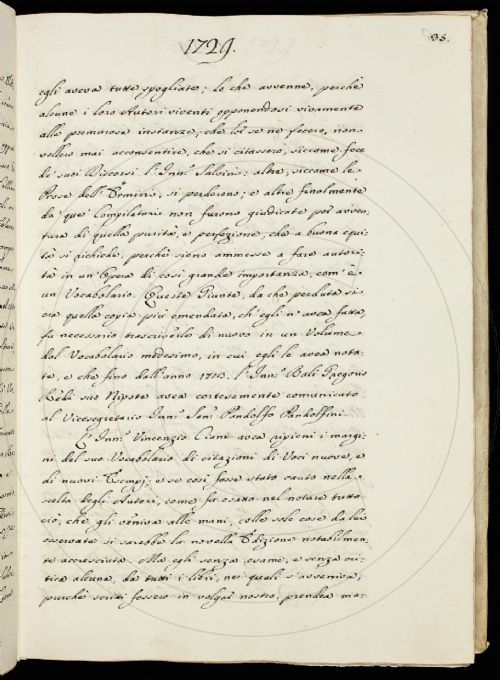 1729.
35.
egli aveva tutte spogliate; lo che avvenne, perchè
alcune i loro Autori viventi opponendosi vivamente
alle premurose instanze, che lor se ne fecero, non
vollero mai acconsentire, che si citassero, siccome fece
de' suoi Discorsi l'Inn.º Salvini: altre, siccome le
Prose dell'              , si perderono; e altre finalmente
da que' Compilatori non furono giudicate per avven-
tura di quella purità, e perfezione, che a buona equi-
tà si richiede, perchè sieno ammesse a fare autori-
tà in un'Opera di così grande importanza, com'è
un Vocabolario. Queste Giunte, da che perduta si
era quella copia più emendata, ch'egli n'avea fatta,
fu necessario trascriverle di nuovo in un Volume
del Vocabolario medesimo, in cui egli le avea nota-
te, e che fino dall'anno 1713. l'Inn.º Balì Gregorio
Redi suo Nipote avea cortesemente comunicato
al Vicesegretario Inn.º Sen.º Pandolfo Pandolfini.
L'Inn.º Vincenzio        avea ripieni i margi-
ni del suo Vocabolario di citazioni di Voci nuove, e
di nuovi Esempj; e se così fosse stato cauto nella
scelta degli Autori, come fu esatto nel notare tutto
ciò, che gli veniva alle mani, colle sole cose da lui
osservate si sarebbe la novella Edizione notabilmen-
te accresciuta. Ma egli senza esame, e senza cri-
tica alcuna, da tutti i libri, ne' quali s'avveniva,
purchè scritti fossero in volgar nostro, prendea ma-